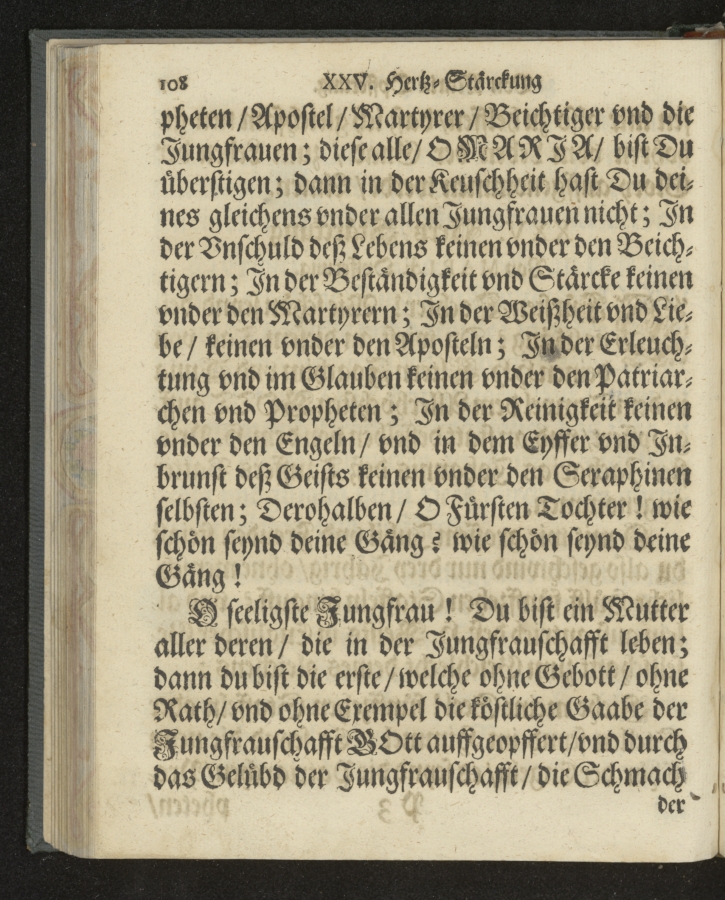 108 XXV. Hertz-Stärckung
pheten / Apostel / Martyrer / Beichtiger vnd die
Jungfrauen; diese alle / O MARJA / bist Du
überstigen; dann in der Keuschheit hast Du dei-
nes gleichens vnder allen Jungfrauen nicht; Jn
der Vnschuld deß Lebens keinen vnder den Beich-
tigern; Jn der Beständigkeit vnd Stärcke keinen
vnder den Martyrern; Jn der Weißheit vnd Lie-
be / keinen vnder den Aposteln; Jn der Erleuch-
tung vnd im Glauben keinen vnder den Patriar-
chen vnd Propheten; Jn der Reinigkeit keinen
vnder den Engeln / vnd in dem Eyffer vnd Jn-
brunst deß Geists keinen vnder den Seraphinen
selbsten; Derohalben / O Fürsten Tochter! wie
schön seynd deine Gäng? wie schön seynd deine
Gäng!
O seeligste Jungfrau! Du bist ein Mutter
aller deren / die in der Jungfrauschafft leben;
dann du bist die erste / welche ohne Gebott / ohne
Rath / vnd ohne Exempel die köstliche Gaabe der
Jungfrauschafft GOtt auffgeopffert / vnd durch
das Gelübd der Jungfrauschafft / die Schmach
der